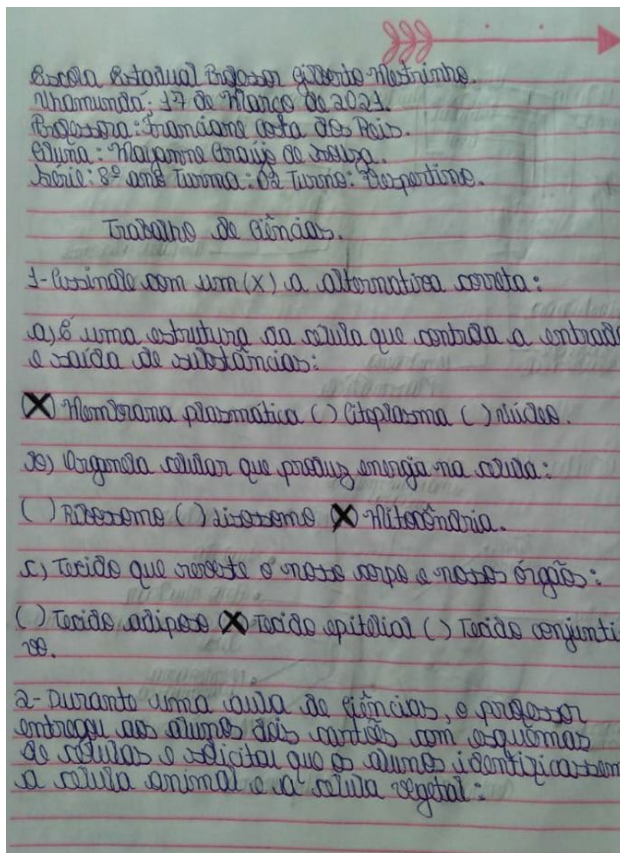 Escola Estadual Professor Gilberto Mestrinho.
Nhamundá: 17 de Março de 2021.
Professora: Franciane Costa dos Reis.
Aluna: Mayanne Araújo de Souza.
Série: 8º ano Turma: 02 Turno: Vespertino.
Trabalho de Ciências.
1- Assinale com um (X) a alternativa correta:
a) É uma estrutura da célula que controla a entrada
e saída de substâncias:
(X) Membrana plasmática ( ) Citoplasma ( ) Núcleo.
b) Organela celular que produz energia na célula:
( ) Ribossomo ( ) Lisossomo (X) Mitocôndria.
c) Tecido que reveste o nosso corpo e nossos órgãos:
( ) Tecido adiposo (X) Tecido epitelial ( ) Tecido conjunti
vo.
2- Durante uma aula de ciências, o professor
entregou aos alunos dois cartões com esquemas
de células e solicitou que os alunos identificassem
a célula animal e a célula vegetal: